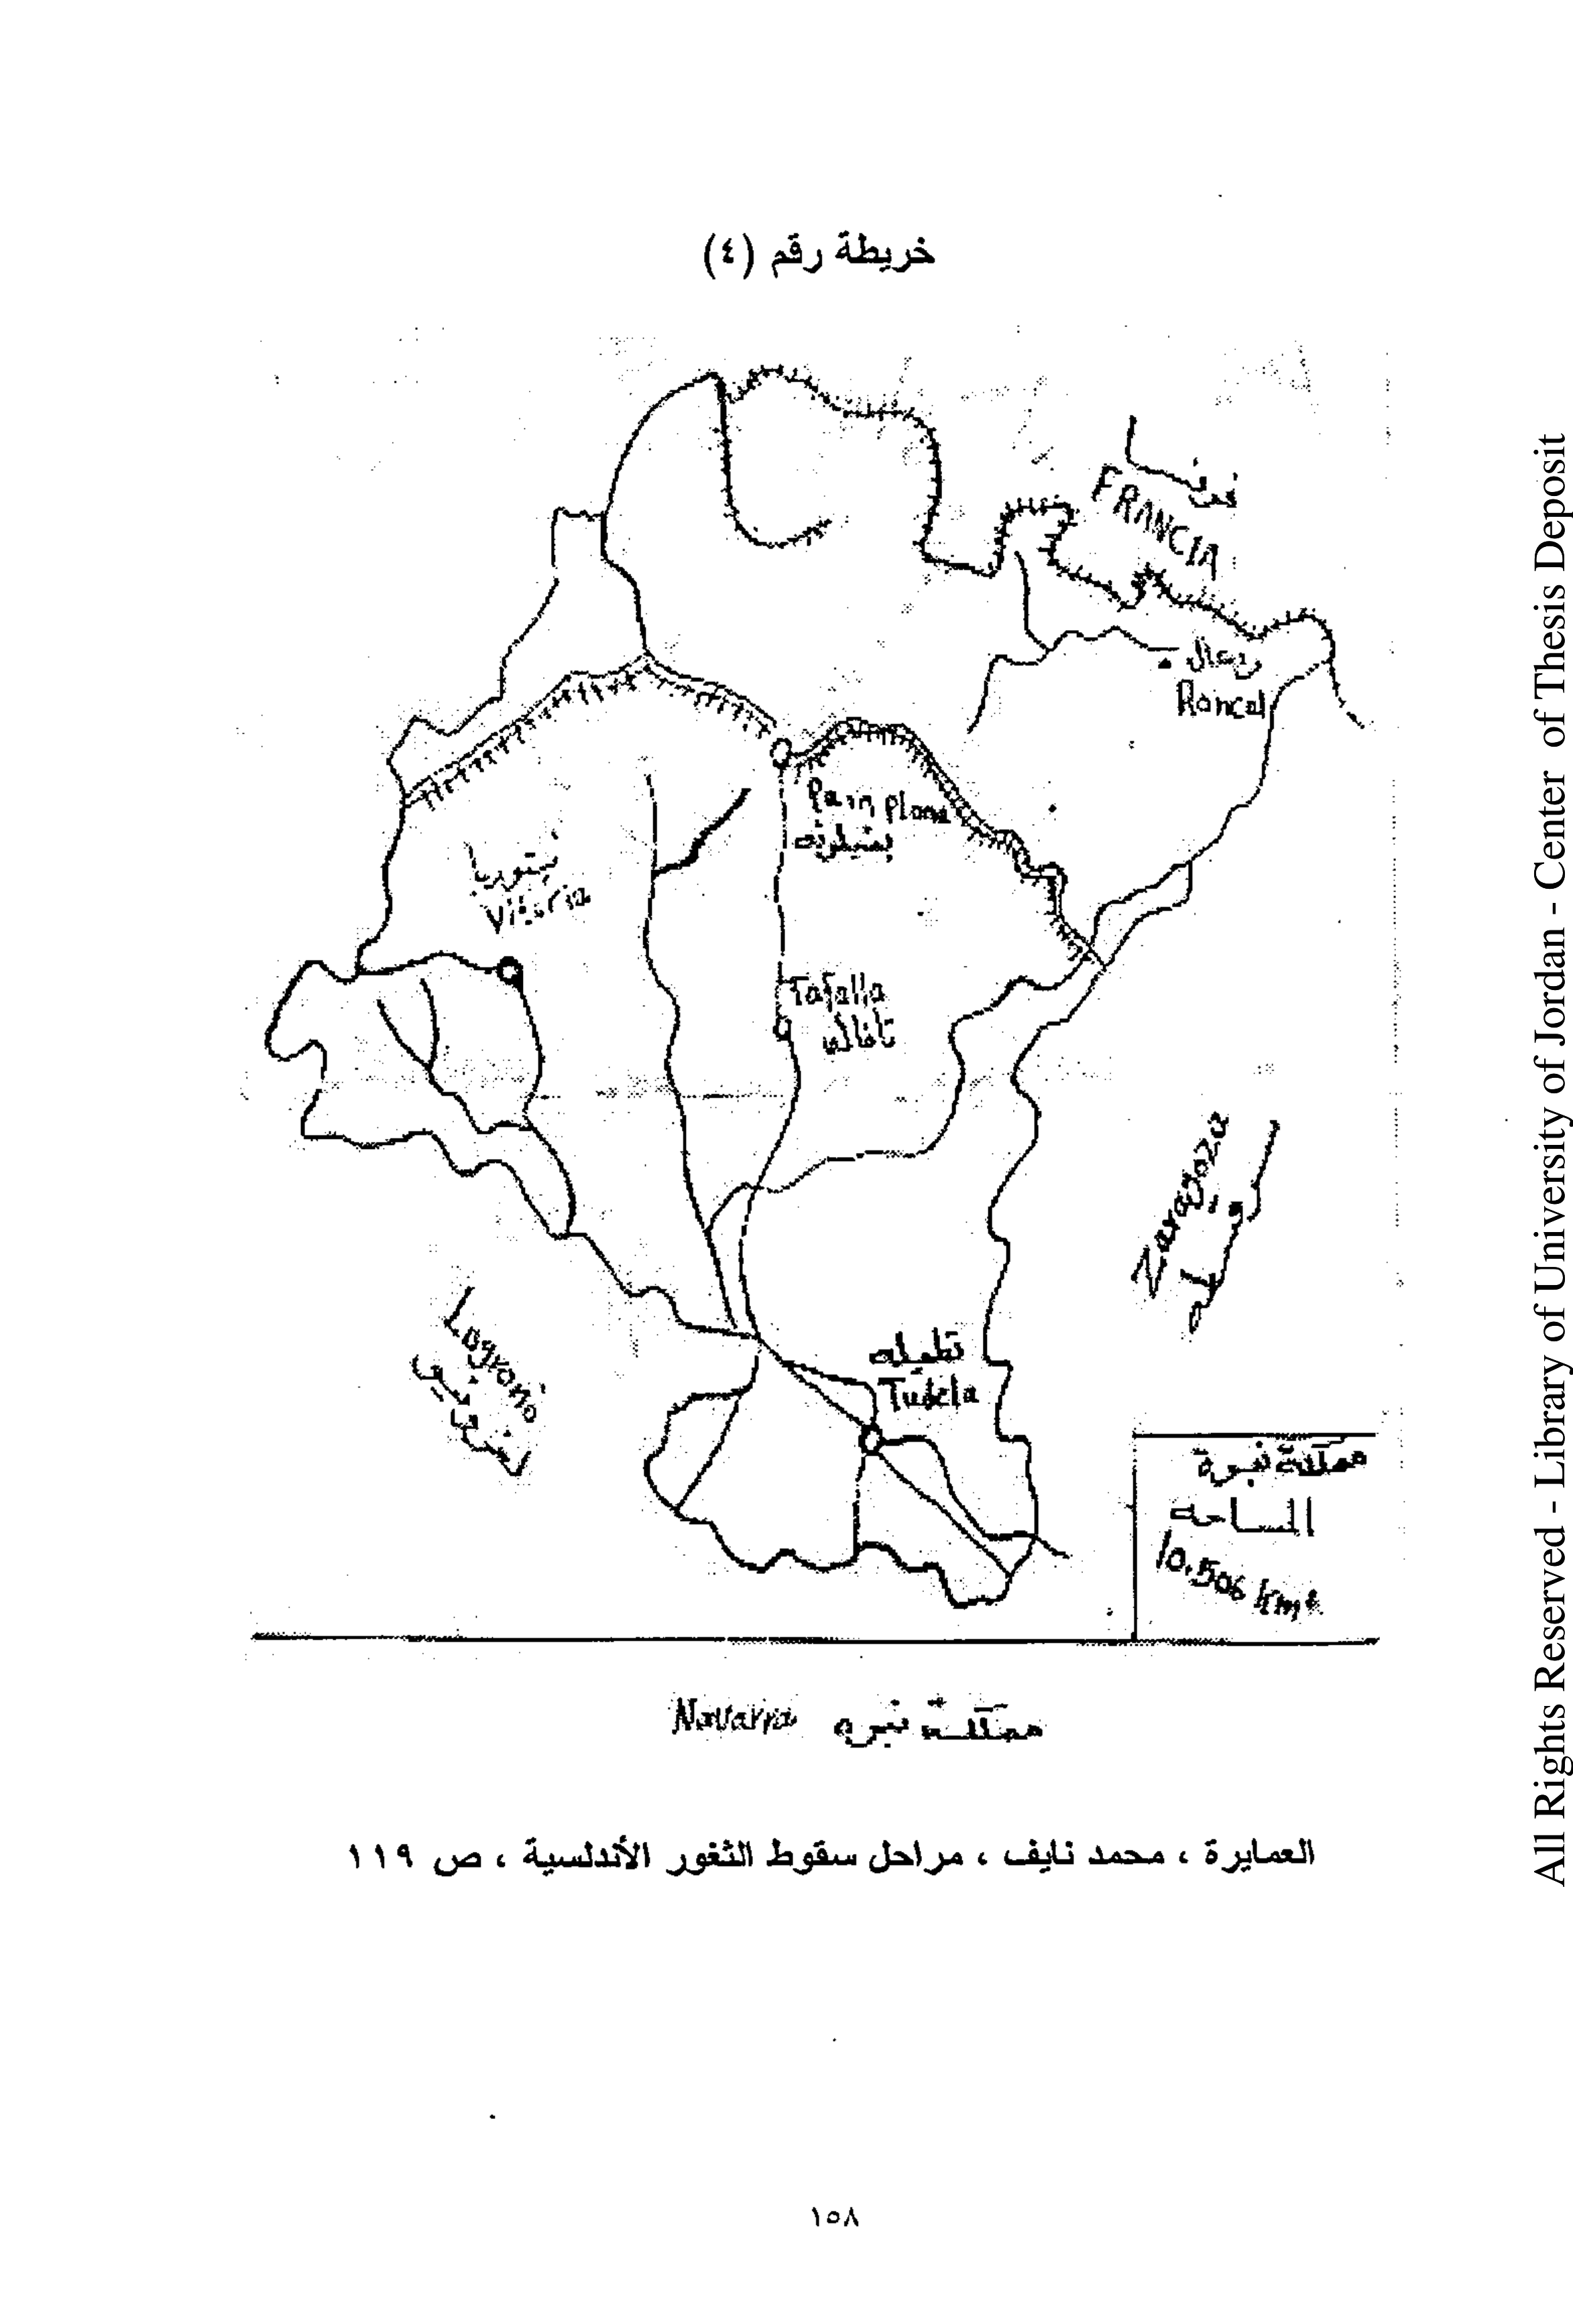 خريطة رقم (٤)
FRANCIA
Roncal
Pamplona
Vitoria
Tafalla
تافاله
Zaragoza
Logroño
تطيله
Tudela
مملكة نبرة
المساحه
10.506 km²
Navarra مملكة نبره
العمايرة ، محمد نايف ، مراحل سقوط الثغور الأندلسية ، ص ١١٩
١٥٨
All Rights Reserved - Library of University of Jordan - Center of Thesis Deposit